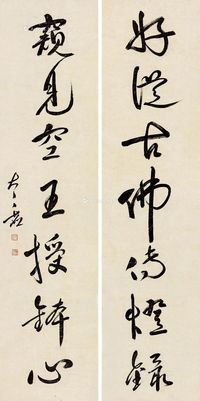 好從古佛傳燈錄
窺見空王授鉢心